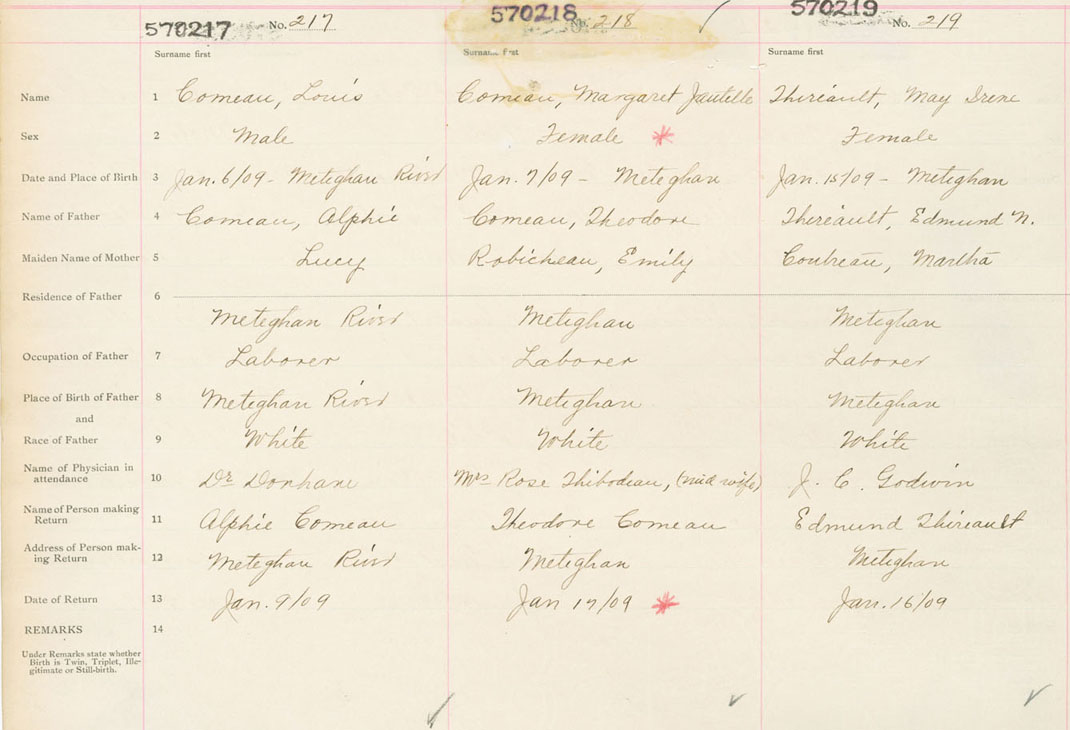 570217 No. 217 570218 No. 218 570219 No. 219
Surname first Surname first Surname first
Name 1 Comeau, Louis Comeau, Margaret Thiréault, May Irene
Sex 2 Male Female Female
Date and Place of Birth 3 Jan. 6/09 - Meteghan River Jan. 7/09 - Meteghan Jan. 15/09 - Meteghan
Name of Father 4 Comeau, Alphie Comeau, Theodore Thiréault, Edmund N.
Maiden Name of Mother 5 Lucy Robicheau, Emily Coubreau, Martha
Residence of Father 6
Meteghan River Meteghan Meteghan
Occupation of Father 7 Laborer Laborer Laborer
Place of Birth of Father 8 Meteghan River Meteghan Meteghan
and
Race of Father 9 White White White
Name of Physician in
attendance 10 Dr Mrs Rose Thibodeau, (mid wife) J. C. Godwin
Name of Person making
Return 11 Alphie Comeau Theodore Comeau Edmund Thireault
Address of Person mak-
ing Return 12 Meteghan River Meteghan Meteghan
Date of Return 13 Jan. 9/09 Jan 17/09 Jan. 16/09
REMARKS 14
Under Remarks state whether
Birth is Twin, Triplet, Ille-
gitimate or Still-birth.